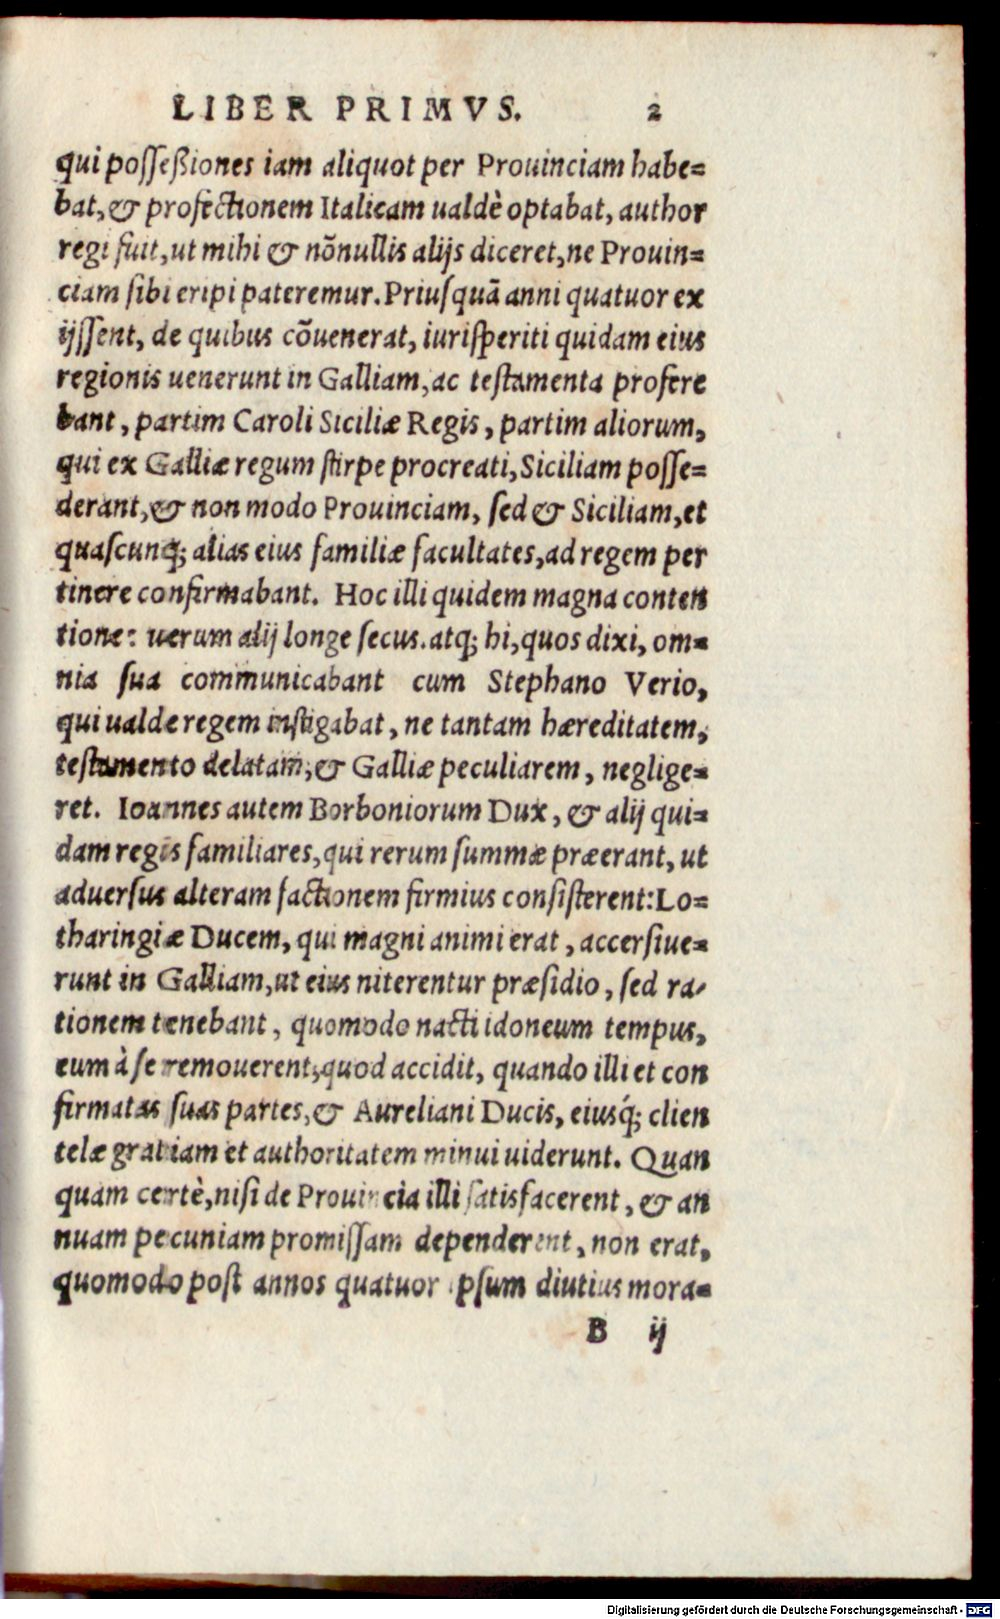 LIBER PRIMVS. 2
qui posseßiones iam aliquot per Prouinciam habe=
bat, & profectionem Italicam ualdè optabat, author
regi fuit, ut mihi & nõnullis alijs diceret, ne Prouin=
ciam sibi eripi pateremur. Priusquã anni quatuor ex
ijssent, de quibus cõuenerat, iurisperiti quidam eius
regionis uenerunt in Galliam, ac testamenta profere
bant, partim Caroli Siciliæ Regis, partim aliorum,
qui ex Galliæ regum stirpe procreati, Siciliam posse=
derant, & non modo Prouinciam, sed & Siciliam, et
quascunq; alias eius familiæ facultates, ad regem per
tinere confirmabant. Hoc illi quidem magna conten
tione: uerum alij longe secus. atq; hi, quos dixi, om=
nia sua communicabant cum Stephano Verio,
qui ualde regem instigabat, ne tantam hæreditatem,
testamento delatam, & Galliæ peculiarem, neglige=
ret. Ioannes autem Borboniorum Dux, & alij qui=
dam regis familiares, qui rerum summæ præerant, ut
aduersus alteram factionem firmius consisterent: Lo=
tharingiæ Ducem, qui magni animi erat, accersiue=
runt in Galliam, ut eius niterentur præsidio, sed ra-
tionem tenebant, quomodo nacti idoneum tempus,
eum à se remouerent, quod accidit, quando illi et con
firmatas suas partes, & Aureliani Ducis, eiusq́; clien
telæ gratiam et authoritatem minui uiderunt. Quan
quam certè, nisi de Prouincia illi satisfacerent, & an
nuam pecuniam promissam dependerent, non erat,
quomodo post annos quatuor ipsum diutius mora=
B ij
Digitalisierung gefördert durch die Deutsche Forschungsgemeinschaft - DFG